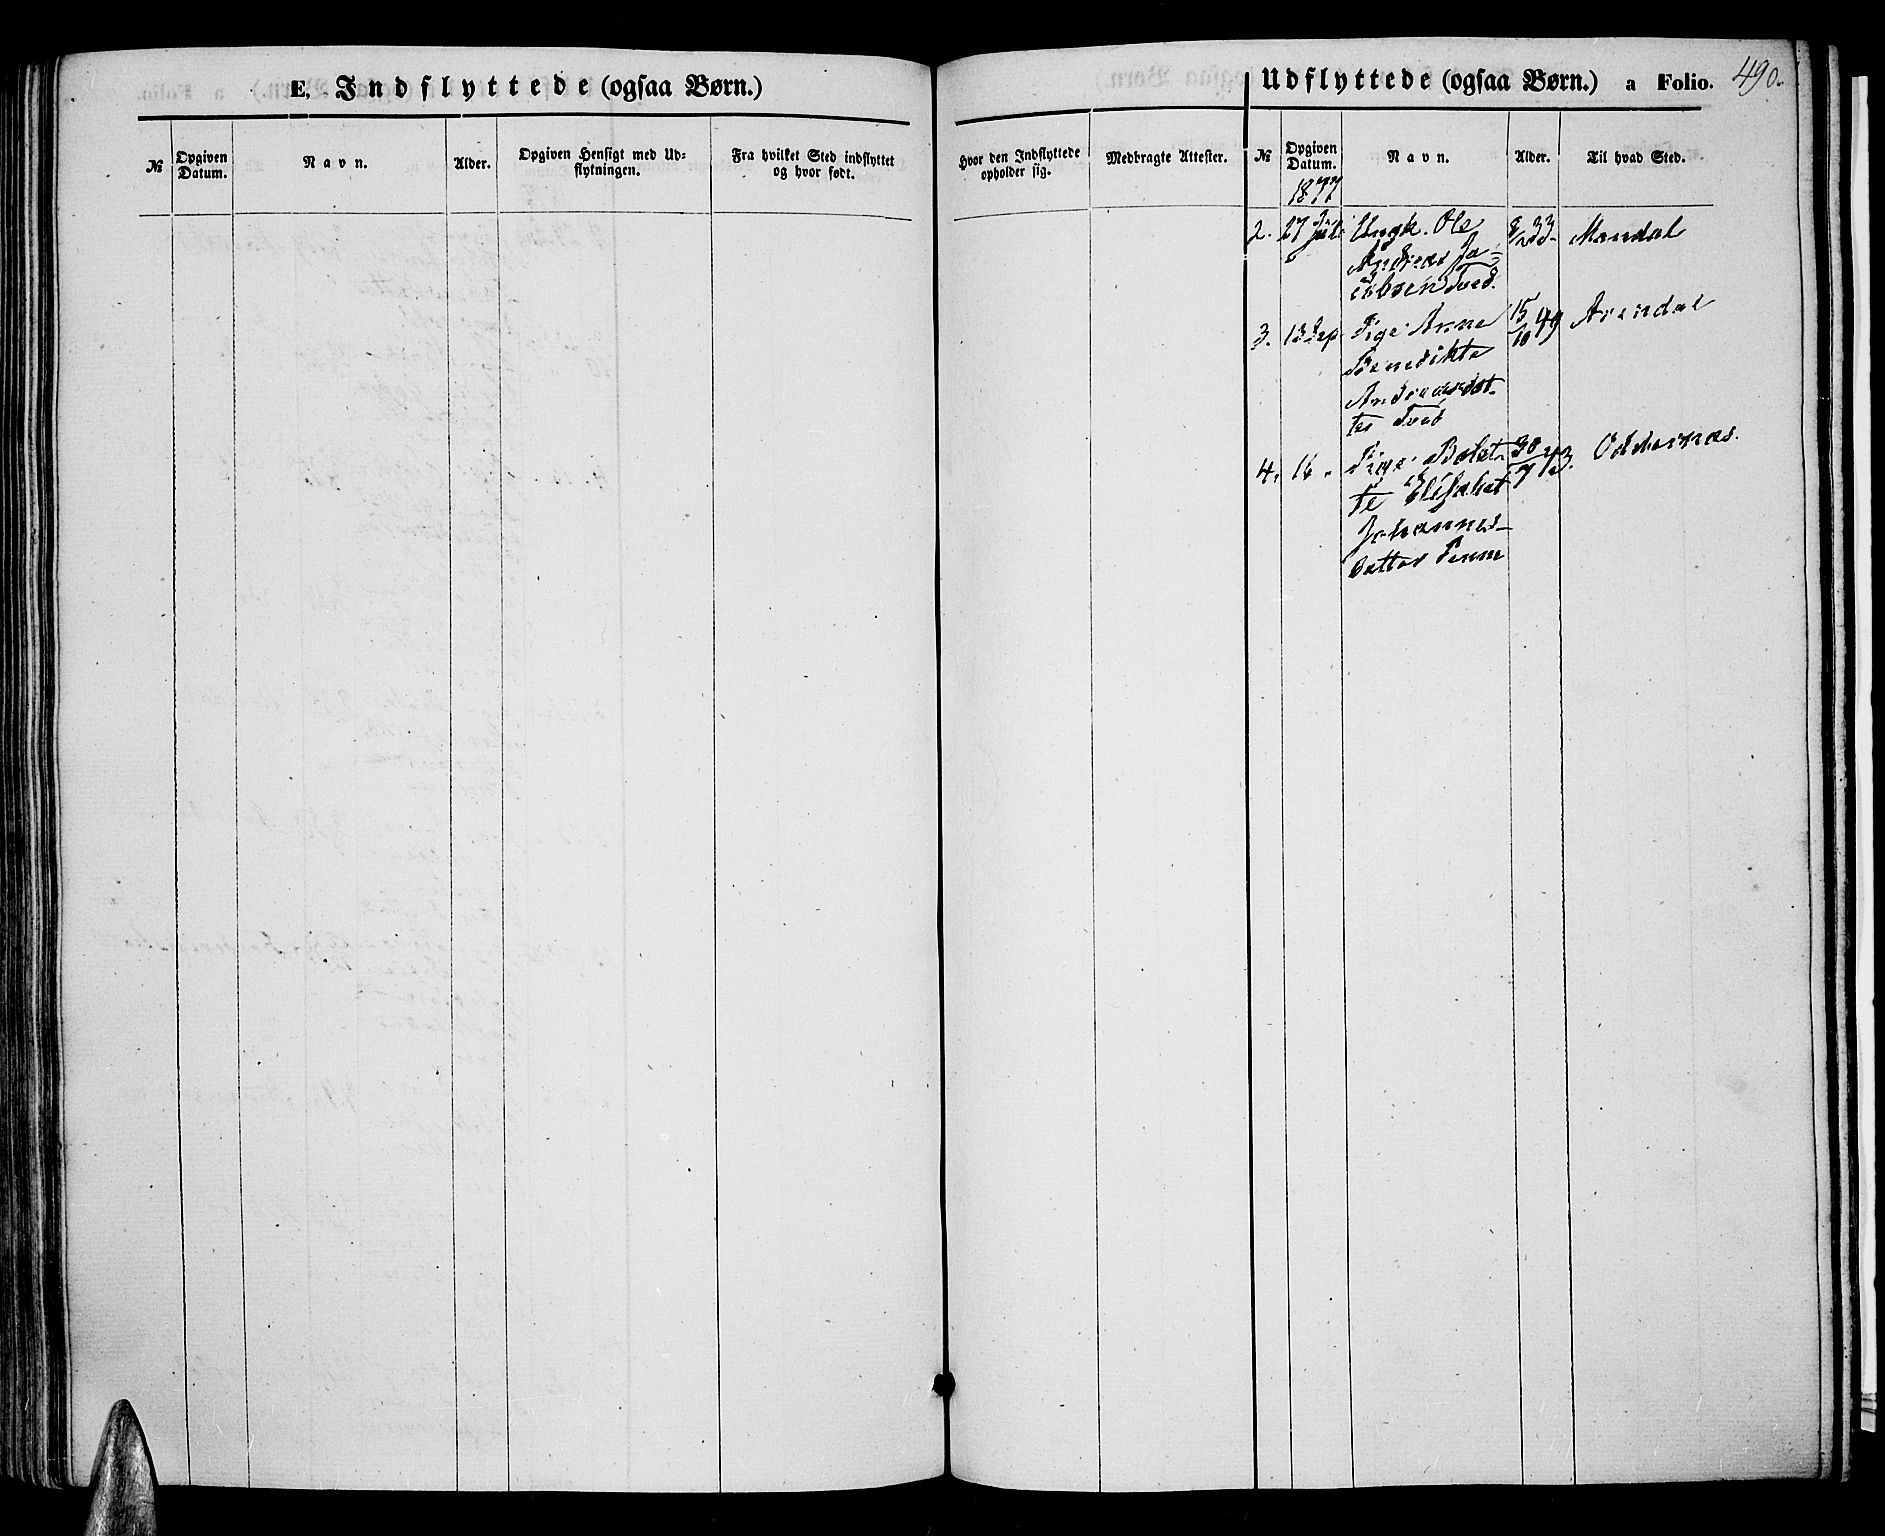 E, Indflyttede (ogsaa Børn.)
№
Opgiven
Datum.
Navn.
Alder.
Opgiven Hensigt med Ud-
flytningen.
Fra hvilket Sted indflyttet
og hvor født.
Udflyttede (ogsaa Børn.) a Folio. 490.
Hvor den Indflyttede
opholder sig.
Medbragte Attester.
№
Opgiven
Datum.
Navn.
Alder.
Til hvad Sted.
1877
2. 27 Juli Ungk. Ole 33 Mandal
Andreas Ja=
cobsen Tved.
3. 13 Sep Pige Anne 15/10 49 Arendal
Benedikte
Andreasdat-
ter Tved
4. 16 " Pige Bolet- 30/7 43. Oddernæs.
te Elisabet
Johannes-
datter Penne